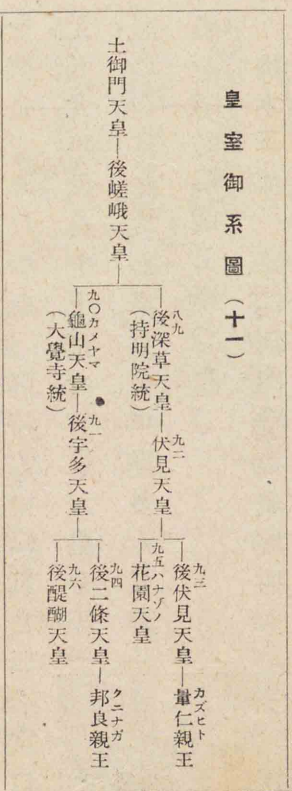 皇室御系圖（十一）
土御門天皇―後嵯峨天皇
八九
後深草天皇
（持明院統）
九二
伏見天皇
九三
後伏見天皇
カズヒト
量仁親王
九五ハナゾノ
花園天皇
九〇カメヤマ
龜山天皇
（大覺寺統）
九一
後宇多天皇
九四
後二條天皇
クニナガ
邦良親王
九六
後醍醐天皇